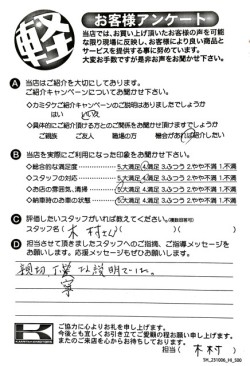 軽
お客様アンケート
当店では、お買い上げ頂いたお客様の声を可能
な限り現場に反映し、お客様により良い商品と
サービスを提供する事に努めています。
大変お手数ですが是非お声をお聞かせ下さい。
A 当店はご紹介を大切にしております。
ご紹介キャンペーンについてお聞かせ下さい。
◇カミタケご紹介キャンペーンのご説明はありましたでしょうか
はい いいえ
◇具体的にご紹介頂ける方とのご関係をお聞かせ頂けますでしょうか
ご親族 ご友人 職場の方 機会があれば紹介したい
B 当店を実際にご利用になった印象をお聞かせ下さい。
◇総合的な満足度 5.大満足 4.満足 3.ふつう 2.やや不満 1.不満
◇スタッフの対応 5.大満足 4.満足 3.ふつう 2.やや不満 1.不満
◇お店の雰囲気、清掃 5.大満足 4.満足 3.ふつう 2.やや不満 1.不満
◇納車時のお車の状態 5.大満足 4.満足 3.ふつう 2.やや不満 1.不満
C 評価したいスタッフがいれば教えてください。(複数回答可)
スタッフ名( 木村さん )( )( )
D 担当させて頂きましたスタッフへのご指摘、ご指導メッセージを
お願いします。応援メッセージもぜひお願いします。
親切、丁寧な説明でした。
寧
K
ご協力に心よりお礼を申し上げます。
今後とも宜しくお引き立てご愛顧の程お願い申し上げます。
またのご来店を心からお待ちしております。
担当( 木村 )